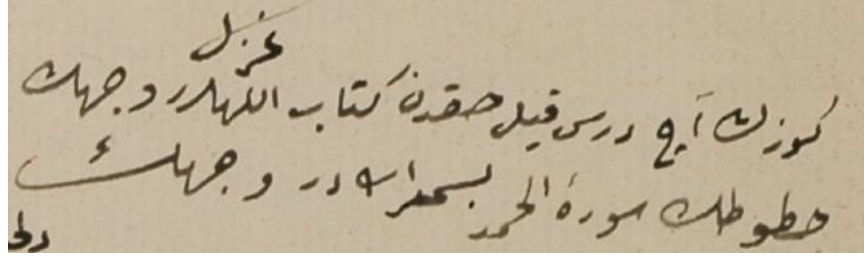 غزل
كوزك آچ درس قيل حقدن كتاب اللهدر وجهك
خطوطك سورۀ الحمد بسم الله در وجهك